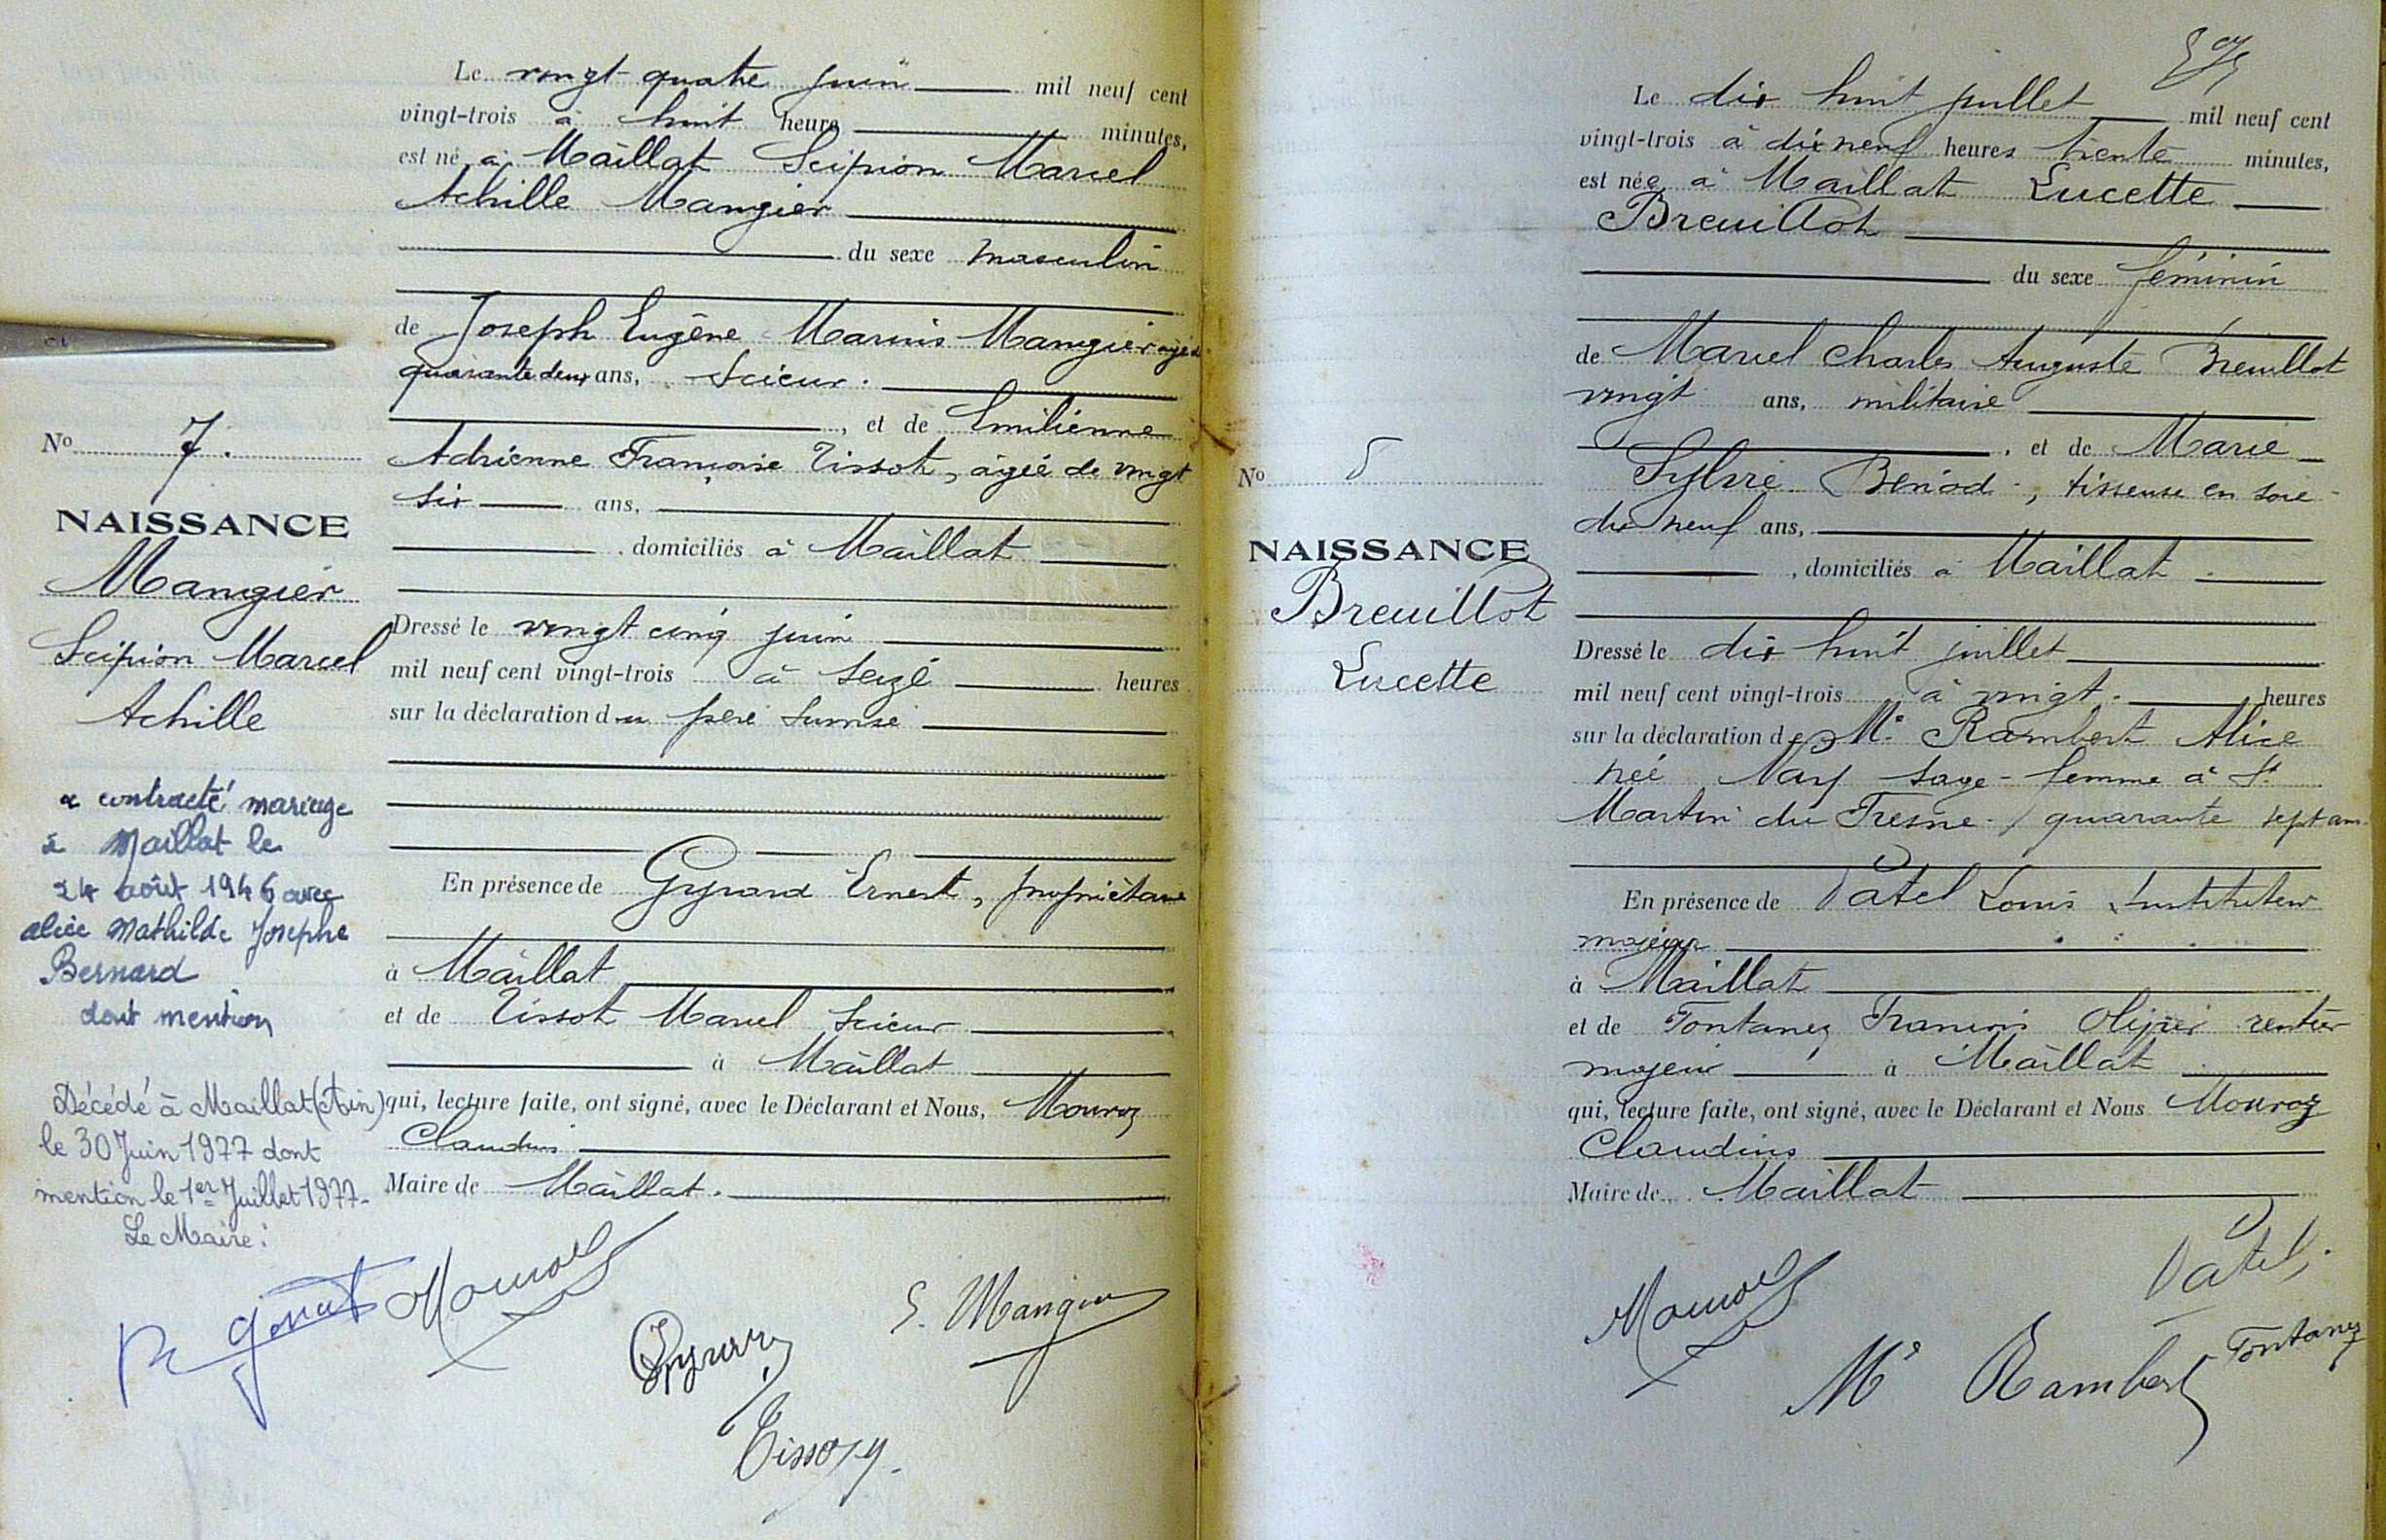 Le vingt-quatre juin mil neuf cent
vingt-trois à huit heure minutes,
est né à Maillat Scipion Marcel
Achille Mangier
du sexe masculin
de Joseph Eugène Marius Mangier agé de
quarante deux ans, Scieur.
, et de Emilienne
Adrienne Françoise Tissot, agée de vingt
six ans,
, domiciliés à Maillat
Dressé le vingt cinq juin
mil neuf cent vingt-trois à seize heures
sur la déclaration du père susnommé
En présence de Gyrard Ernest, propriétaire
à Maillat
et de Tissot Marcel Scieur
à Maillat
qui, lecture faite, ont signé, avec le Déclarant et Nous, Mouroz
Claudius
Maire de Maillat.
No 7.
NAISSANCE
Mangier
Scipion Marcel
Achille
a contracté mariage
à Maillat le
24 août 1946 avec
Alice Mathilde Josephe
Bernard
dont mention
Décédé à Maillat (Ain)
le 30 Juin 1977 dont
mention le 1er Juillet 1977-
Le Maire:
Mouroz
E. Mangier
Gyrard
Tissot
Le dix huit juillet mil neuf cent
vingt-trois à dix neuf heures trente minutes,
est née à Maillat Lucette
Breuillot
du sexe féminin
de Marcel Charles Auguste Breuillot
vingt ans, militaire
, et de Marie
Sylvie Beniod, tisseuse en soie
dix neuf ans,
, domiciliés à Maillat
Dressé le dix huit juillet
mil neuf cent vingt-trois à vingt heures
sur la déclaration de Me Rambert Alice
née sage-femme à St
Martin du Fresne, quarante sept ans
En présence de Vatel Louis Instituteur
majeur
à Maillat
et de Fontanez François rentier
majeur à Maillat
qui, lecture faite, ont signé, avec le Déclarant et Nous Mouroz
Claudius
Maire de Maillat
No
NAISSANCE
Breuillot
Lucette
Vatel
Mouroz
Fontanez
Me Rambert